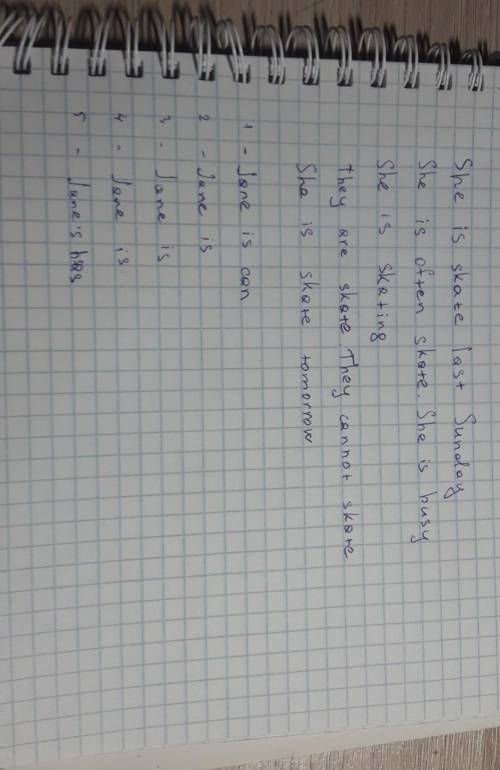 She is skate last Sunday
She is often skate. She is busy
She is skating
They are skate. They cannot skate
She is skate tomorrow
1 - Jane is can
2 - Jane is
3 - Jane is
4 - Jane is
5 - Jane's has